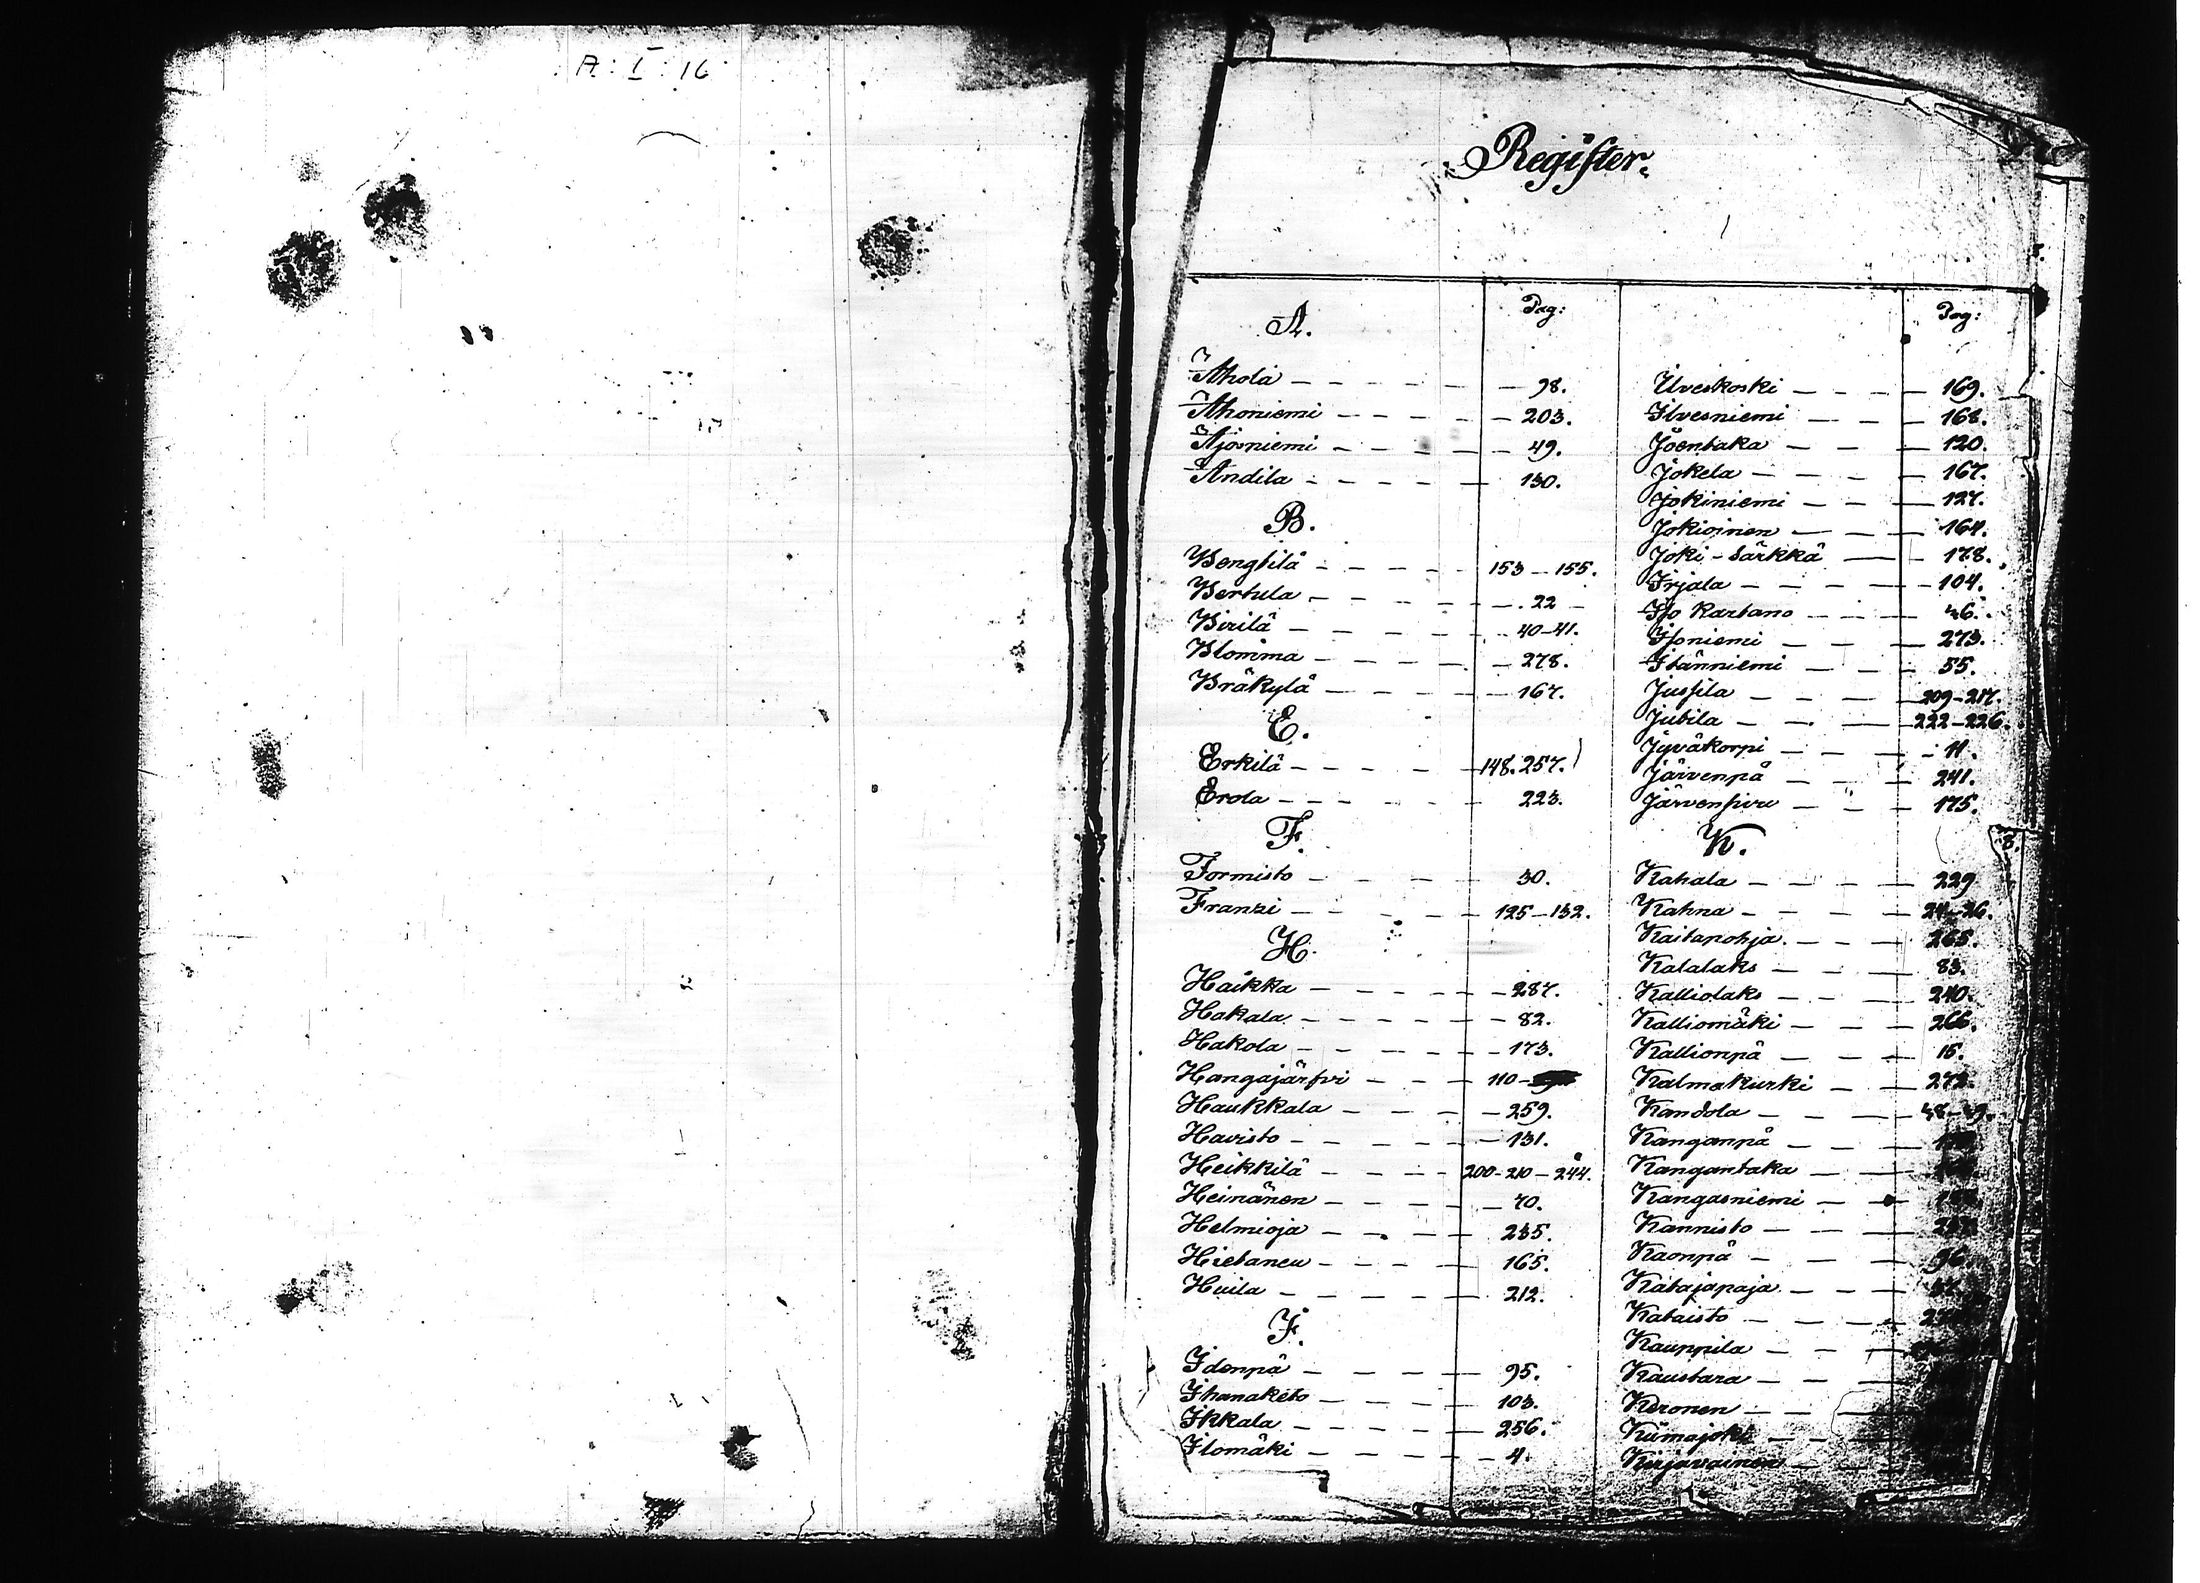 A: I: 16
Register.
A.
Pag:
Ahola — 98.
Ahoniemi — 203.
Ajosniemi — 49.
Andila — 130.
B.
Bengtilä — 153-155.
Bertula — 22
Birilä — 40-41.
Blomma — 278.
Bräkylä — 167.
E.
Erkilä — 148. 257.
Erola — 223.
F.
Formisto — 30.
Franzi — 125-132.
H.
Haikka — 287.
Hakala — 82.
Hakola — 173.
Hangajärfvi — 110-
Haukkala — 259.
Havisto — 131.
Heikkilä — 200-210-244.
Heinänen — 70.
Helmioja — 235.
Hietaneu — 165.
Huila — 212.
I.
Idenpä — 95.
Ihanaketo — 103.
Ikkala — 256.
Ilomäki — 4.
Pag:
Ilveskoski — 169.
Ilvesniemi — 168.
Joentaka — 120.
Jokela — 167.
Jokiniemi — 127.
Jokioinen — 164.
Joki-särkkä — 178.
Irjala — 104.
Iso Kartano — 46.
Isoniemi — 273.
Itänniemi — 55.
Jussila — 209-217.
Jutila — 222-226.
Jyväkorpi — 11.
Järvenpä — 241.
Järvensivu — 175.
K.
Kahala — 229
Kahna — 24-26.
Kaitapohja — 265.
Kalalaks — 83.
Kalliolaks — 240.
Kalliomäki — 266.
Kallionpä — 15.
Kalmakurki — 272.
Kandola — 48-49.
Kanganpä
Kangantaka
Kangasniemi
Kannisto
Kaonpä — 96.
Katajapaja
Kataisto
Kauppila
Kaustara
Keronen
Kiimajoki
Kirjavainen